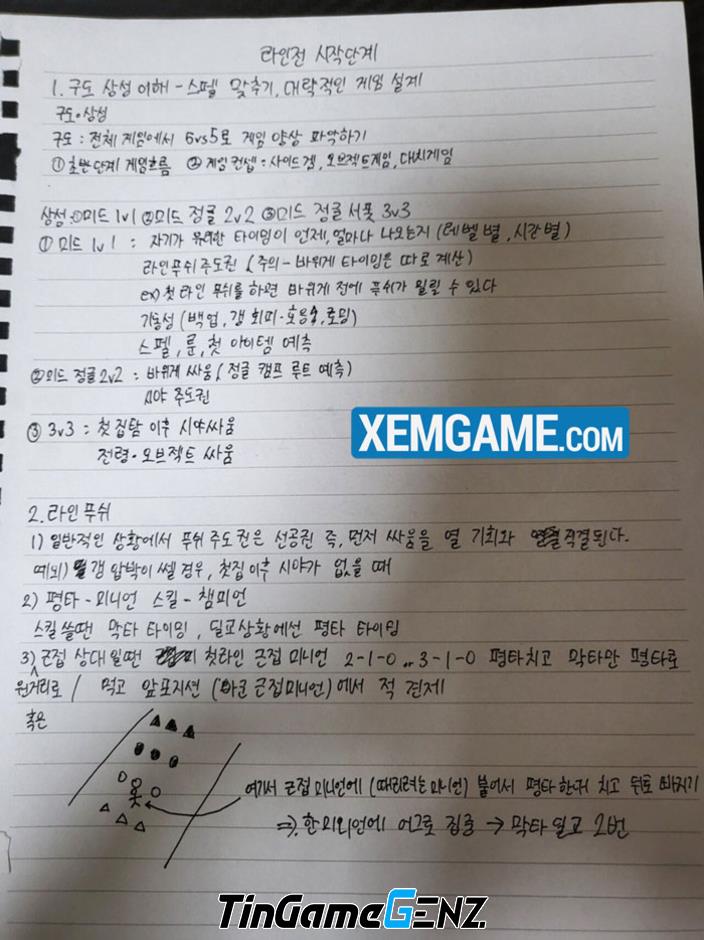 라인전 시작단계
1. 구도 상성 이해 - 스펠 맞추기, 대략적인 게임 설계
구도·상성
구도 : 전체 게임에서 5vs5로 게임 양상 파악하기
① 초반 단계 게임흐름 ② 게임 컨셉 : 사이드겜, 오브젝트게임, 대치게임
상성 : ①미드 1v1 ②미드 정글 2v2 ③미드 정글 서폿 3v3
① 미드 1v1 : 자기가 유리한 타이밍이 언제, 얼마나 나오는지 (레벨별, 시간별)
라인푸쉬 주도권 (주의 - 바위게 타이밍은 따로 계산)
ex) 첫 라인 푸쉬를 하면 바위게 전에 푸쉬가 밀릴 수 있다
기동성 (백업, 갱 회피·호응, 로밍)
스펠, 룬, 첫 아이템 예측
②미드 정글 2v2 : 바위게 싸움 (정글 캠프 루트 예측)
시야 주도권
③ 3v3 : 첫 집탐 이후 시야싸움
전령·오브젝트 싸움
XEMGAME.COM
2. 라인 푸쉬
1) 일반적인 상황에서 푸쉬 주도권은 선공권 즉, 먼저 싸움을 열 기회와 직결된다.
예외) 갱 압박이 쎌 경우, 첫집 이후 시야가 없을 때
2) 평타 - 미니언 스킬 - 챔피언
스킬 쓸땐 막타 타이밍, 딜교상황에선 평타 타이밍
3) 근접 상대 일땐 첫라인 근접 미니언 2-1-0 or 3-1-0 평타치고 막타만 평타로
원거리로 / 먹고 앞포지션 (아군 근접미니언)에서 적 견제
혹은
여기서 근접 미니언에 (때리려는 미니언) 붙어서 평타 한대 치고 뒤로 빠지기
⇒ 한 미니언에 어그로 집중 → 막타 딜교 2번
TinGameGENZ